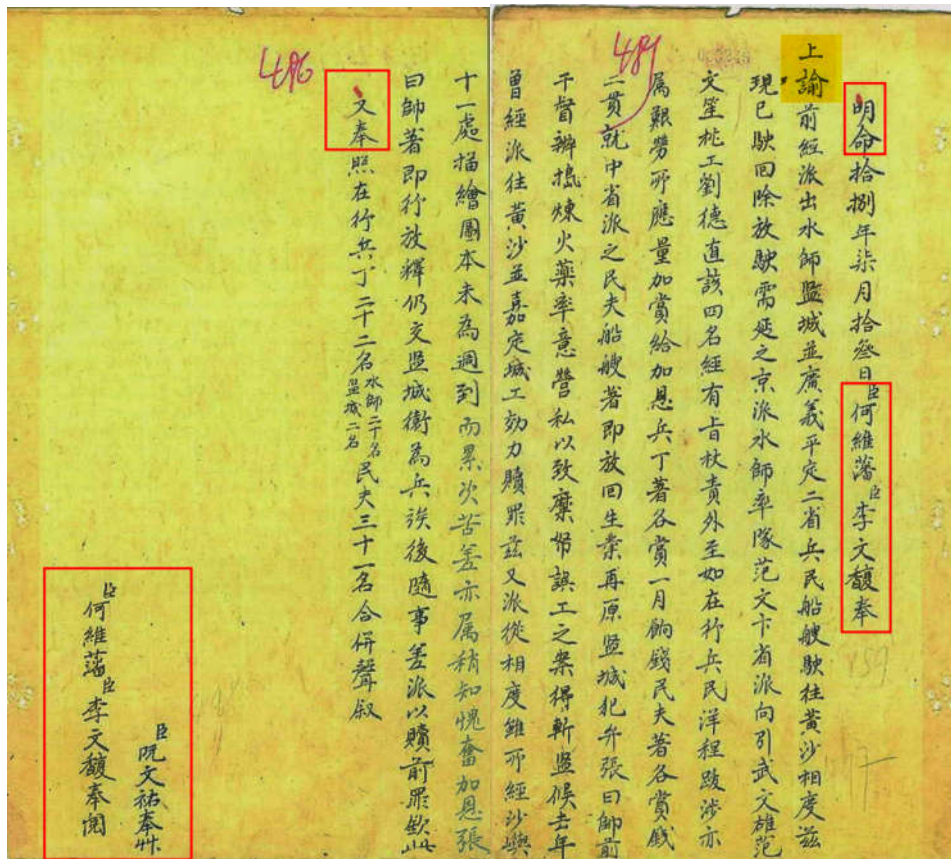 明命拾捌年柒月拾叁日臣何維藩臣李文馥奉
上諭前經派出水師監城並廣義平定二省兵民船艘駛往黃沙相度茲
現已駛回除放駛需延之京派水師率隊范文卞省派向引武文雄范
文笙桃工劉德直該四名經有旨杖責外至如在行兵民洋程跋涉亦
属艱勞所應量加賞給加恩兵丁著各賞一月餉錢民夫著各賞錢
二貫就中省派之民夫船艘著即放回生業再原監城犯弁張曰師前
干督辦搗煉火藥率意營私以致糜帑誤工之案得斬監候去年
曾經派往黃沙並嘉定城工効力贖罪茲又派從相度雖所經沙嶼
十一處描繪圖本未為週到而累次苦差亦属稍知愧奮加恩張
曰師著即行放釋仍交監城衛為兵俟後隨事差派以贖前罪欽此
496
又奉照在行兵丁二十二名水師二十名監城二名民夫三十一名合併聲叙
臣阮文祐奉艸
臣何維藩臣李文馥奉閲